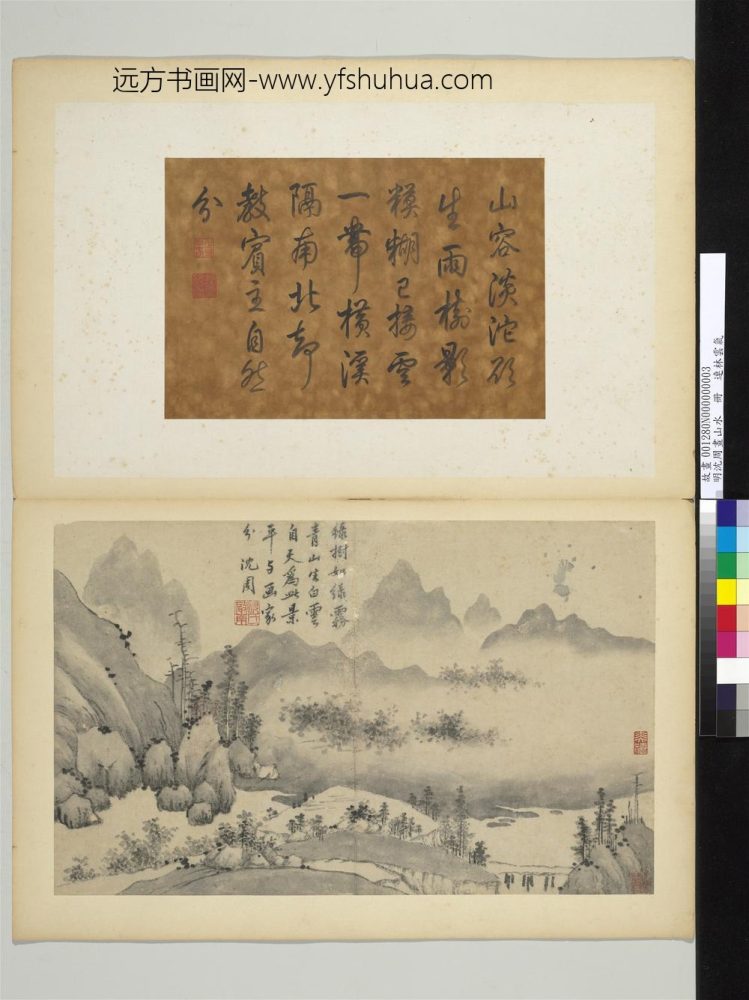 远方书画网-www.yfshuhua.com
山容淡沱欲
生雨樹影
糢糊已接雲
一帶橫溪
隔南北却
教賓主自然
分
綠樹如綠霧
青山生白雲
自天為此景
平与画家
分 沈周
故畫001280N000000003
明沈周畫山水 冊 遠林雲氣